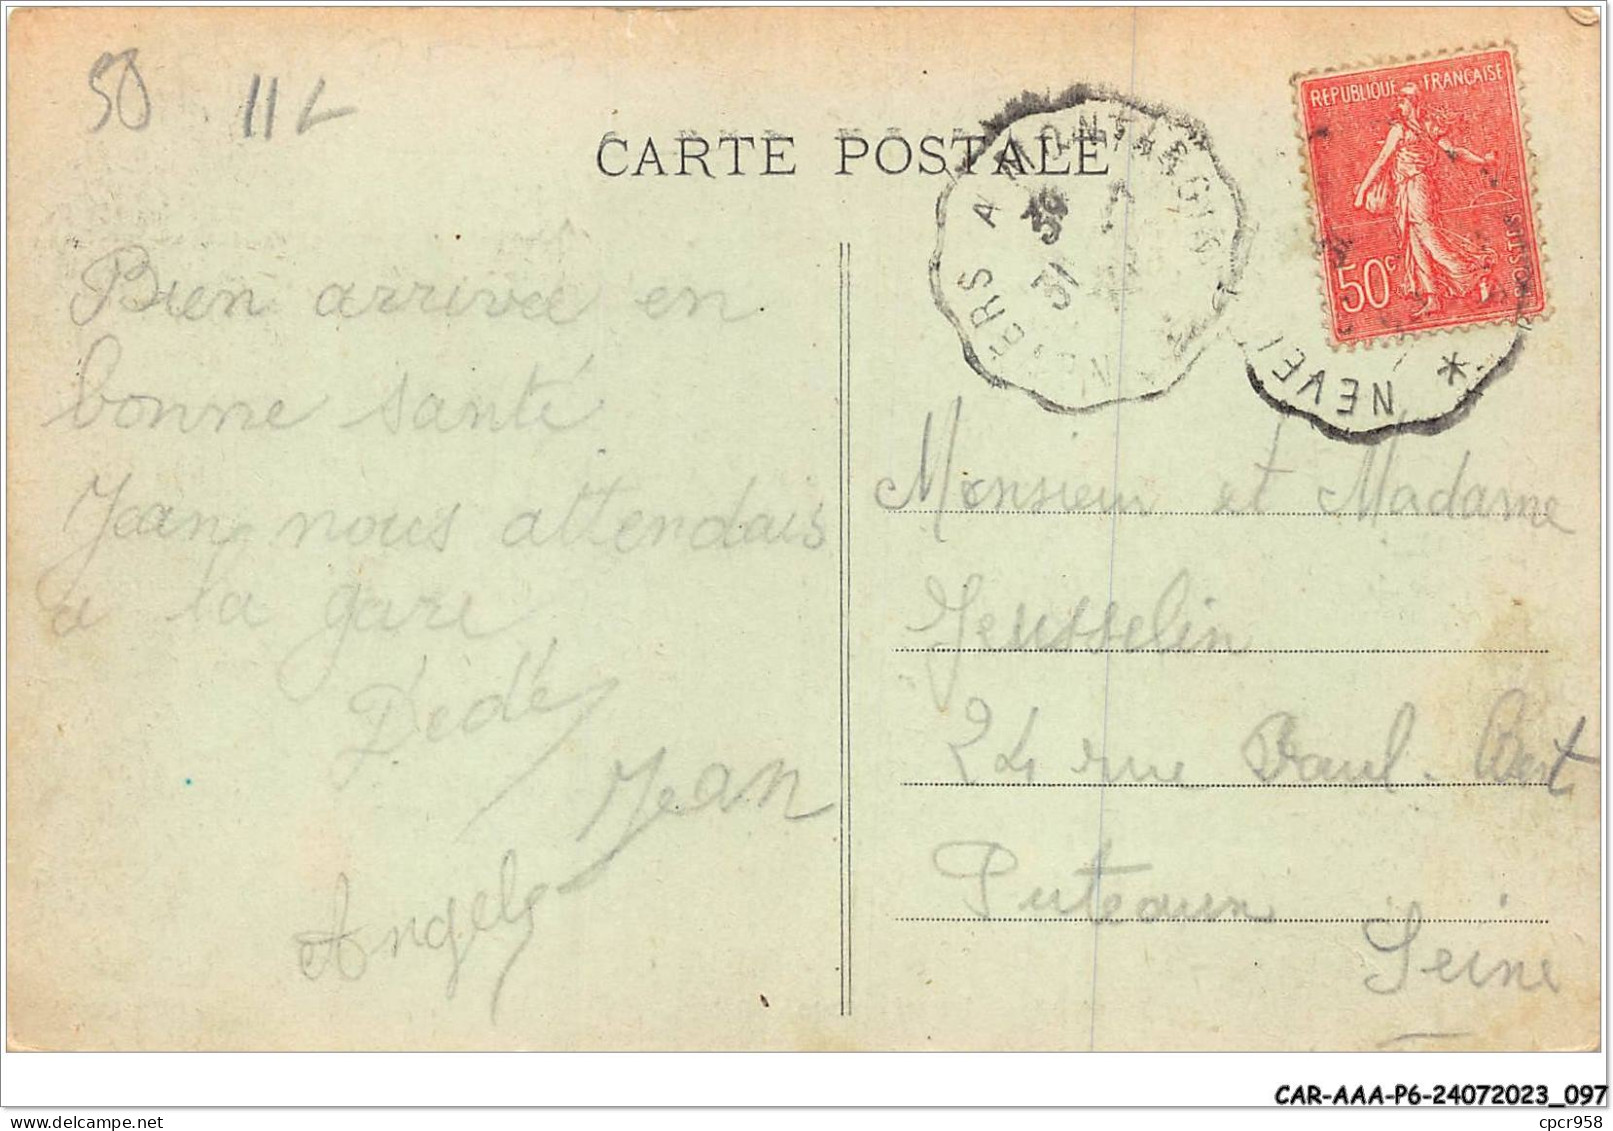 50 11L
CARTE POSTALE
NEVERS A MONTARGIS
31
RÉPUBLIQUE FRANÇAISE
50c
POSTES
NEVE
Bien arrivée en
bonne santé
Jean nous attendais
a la gare
Dédé
Jean
Angele
Monsieur et Madame
Jeusselin
24 rue Paul. Bert
Puteaux
Seine
CAR-AAA-P6-24072023_097
delcampe.net
cpcr958